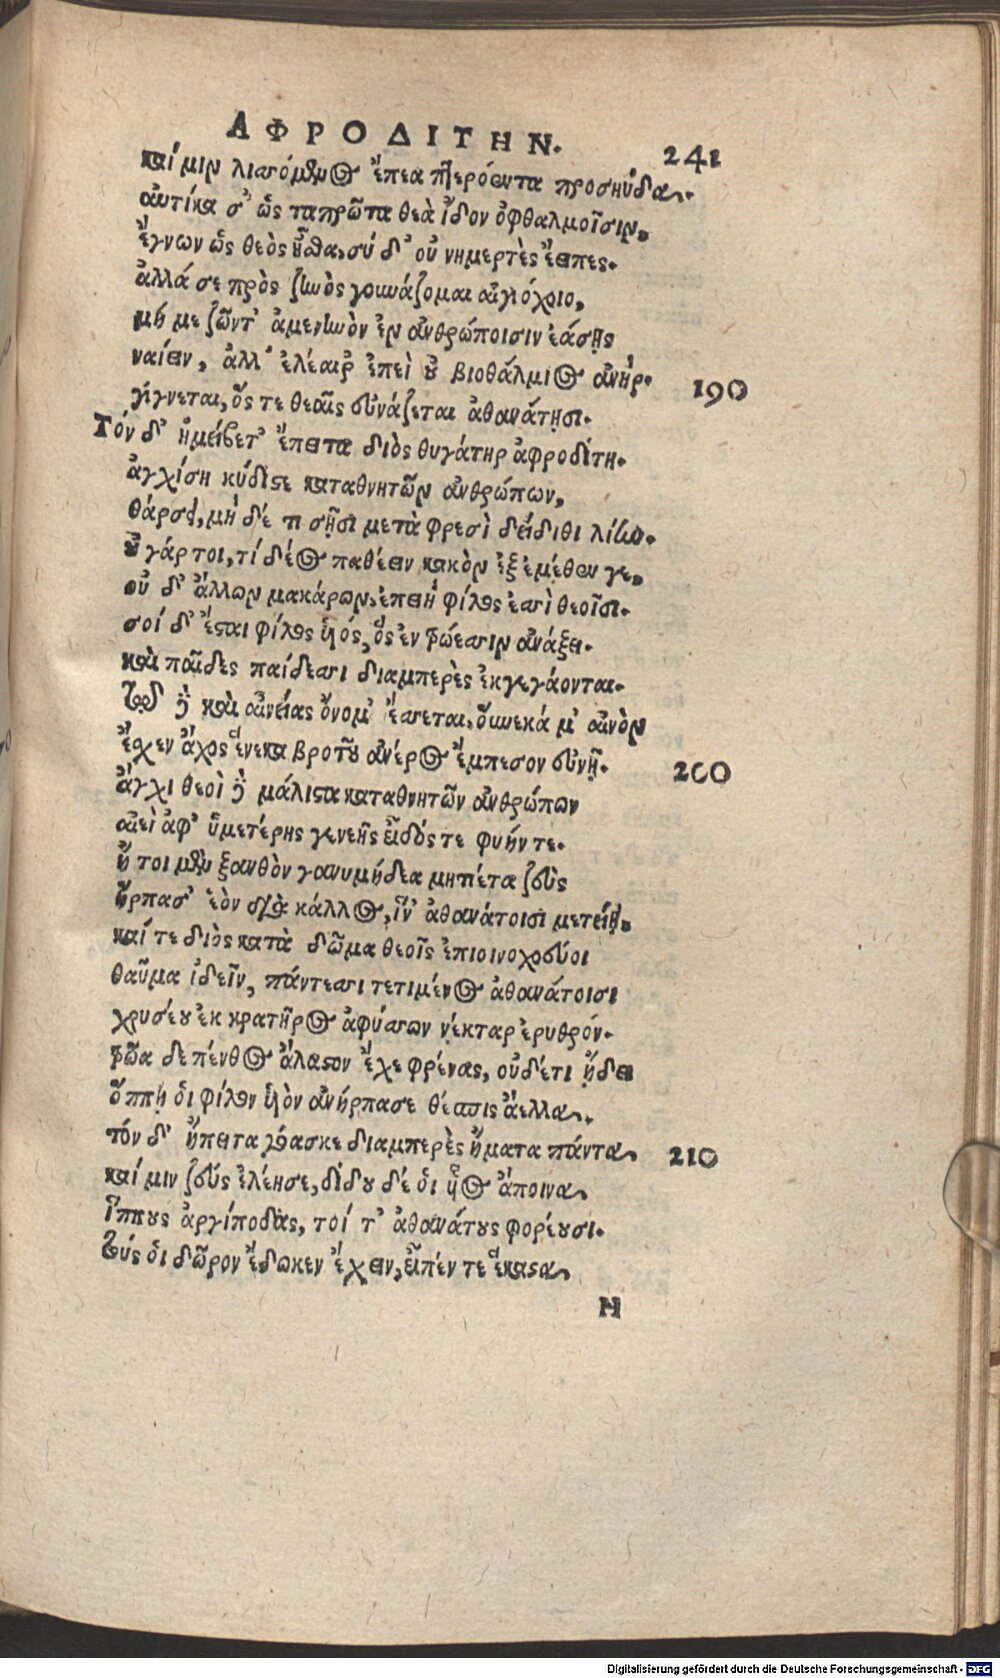 ΑΦΡΟΔΙΤΗΝ. 241
καί μιν λισσόμενος ἔπεα πτερόεντα προσηύδα.
αὐτίκα σ' ὡς ταπρῶτα θεὰ ἴδον ὀφθαλμοῖσιν,
ἔγνων ὡς θεὸς ἦσθα, σύ δ' οὐ νημερτὲς ἔειπες.
ἀλλά σε πρὸς ζηνὸς γουνάζομαι αἰγιόχοιο,
μή με ζῶντ' ἀμενηνὸν ἐν ἀνθρώποισιν ἐάσῃς
ναίειν, ἀλλ' ἐλέαιρ' ἐπεὶ οὐ βιοθάλμιος ἀνήρ. 190
γίγνεται, ὅς τε θεαῖς συνάζεται ἀθανάτῃσι.
Τόν δ' ἠμείβετ' ἔπειτα διὸς θυγάτηρ ἀφροδίτη.
ἀγχίση κύδιστε καταθνητῶν ἀνθρώπων,
θάρσει, μὴ δέ τι σῇσι μετὰ φρεσὶ δείδιθι λίην.
οὐ γάρ τοι, τί δέος παθέειν κακὸν ἐξ ἐμέθεν γε,
οὐ δ' ἄλλων μακάρων, ἐπειὴ φίλος ἐσσὶ θεοῖσι.
σοί δ' ἔσται φίλος υἱός, ὃς ἐν τρώεσσιν ἀνάξει.
καὶ παῖδες παίδεσσι διαμπερὲς ἐκγεγάονται.
τῷ δ καὶ αἰνείας ὄνομ' ἔσσεται, οὕνεκά μ' αἰνὸν
ἔσχεν ἄχος ἕνεκα βροτοῦ ἀνέρος ἔμπεσον εὐνῇ. 200
ἄγχι θεοὶ δὲ μάλιστα καταθνητῶν ἀνθρώπων
αἰεὶ ἀφ' ὑμετέρης γενεῆς εἶδός τε φυήν τε.
ἤ τοι μὲν ξανθὸν γανυμήδεα μητιέτα ζεὺς
ἥρπασ' ἑὸν διὰ κάλλος, ἵν' ἀθανάτοισι μετείη,
καί τε διὸς κατὰ δῶμα θεοῖς ἐπιοινοχοεύοι
θαῦμα ἰδεῖν, πάντεσσι τετιμένος ἀθανάτοισι
χρυσέου ἐκ κρατῆρος ἀφύσσων νέκταρ ἐρυθρόν.
τρῶα δε πένθος ἄλαστον ἔχε φρένας, οὐδέτι ᾔδει
ὅππῃ ὁι φίλον υἱὸν ἀνήρπασε θέσπις ἄελλα.
τόν δ' ἤπειτα γόασκε διαμπερὲς ἤματα πάντα, 210
καί μιν ζεύς ἐλέησε, δίδου δέ ὁι υἷος ἄποινα,
ἵππους ἀργίποδας, τοί τ' ἀθανάτους φορέουσι.
τούς ὁι δῶρον ἔδωκεν ἔχειν, εἶπέν τε ἕκαστα,
H
Digitalisierung gefördert durch die Deutsche Forschungsgemeinschaft - DFG